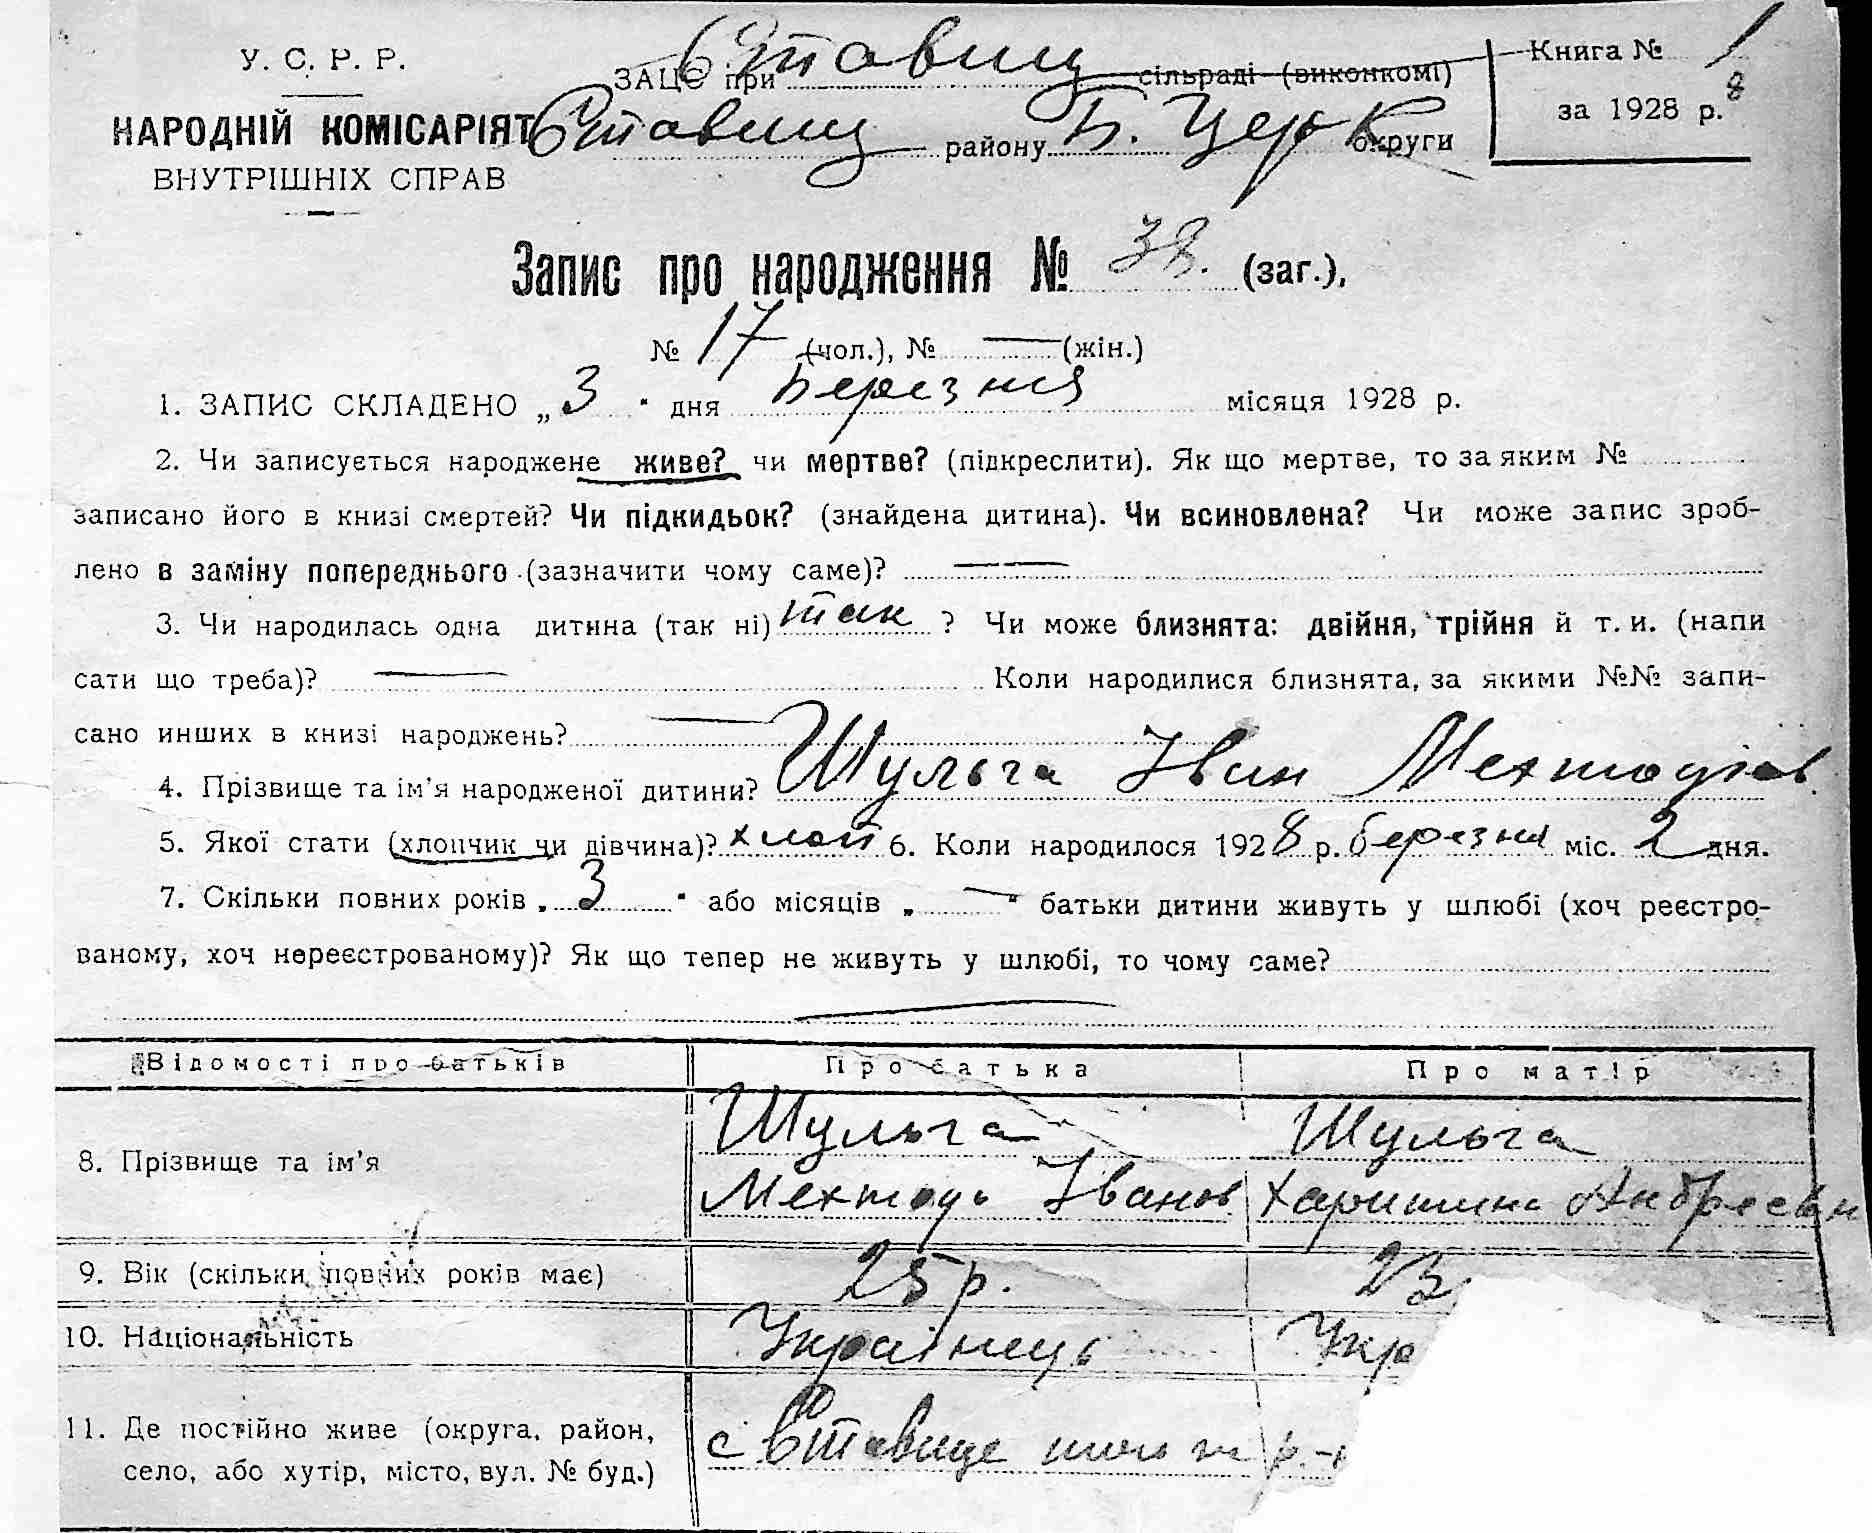 У. С. Р. Р.
НАРОДНІЙ КОМІСАРІЯТ
ВНУТРІШНІХ СПРАВ
ЗАЦС при Ставищ сільраді (виконкомі)
Ставищ району Б. Церк округи
Книга № 1
за 1928 р.
8
Запис про народження № 38. (заг.),
№ 17 (чол.), № — (жін.)
1. ЗАПИС СКЛАДЕНО „ 3 " дня Березня місяця 1928 р.
2. Чи записується народжене живе? чи мертве? (підкреслити). Як що мертве, то за яким №
записано його в книзі смертей? Чи підкидьок? (знайдена дитина). Чи всиновлена? Чи може запис зроб-
лено в заміну попереднього (зазначити чому саме)? —
3. Чи народилась одна дитина (так ні) так ? Чи може близнята: двійня, трійня й т. и. (напи
сати що треба)? — Коли народилися близнята, за якими №№ запи-
сано инших в книзі народжень? —
4. Прізвище та ім'я народженої дитини? Шульга Іван Мехтодіев.
5. Якої стати (хлопчик чи дівчина)? хлоп 6. Коли народилося 1928 р. березня міс. 2 дня.
7. Скільки повних років „ 3 " або місяців „ — " батьки дитини живуть у шлюбі (хоч реєстро-
ваному, хоч нереєстрованому)? Як що тепер не живуть у шлюбі, то чому саме?
—
Відомості про батьків Про батька Про матір
8. Прізвище та ім'я Шульга Мехтодь Іванов Шульга Харитина Андреевн
9. Вік (скільки повних років має) 25 р. 23
10. Національність Українець Укр
11. Де постійно живе (округа, район,
село, або хутір, місто, вул. № буд.) с Ставище р-